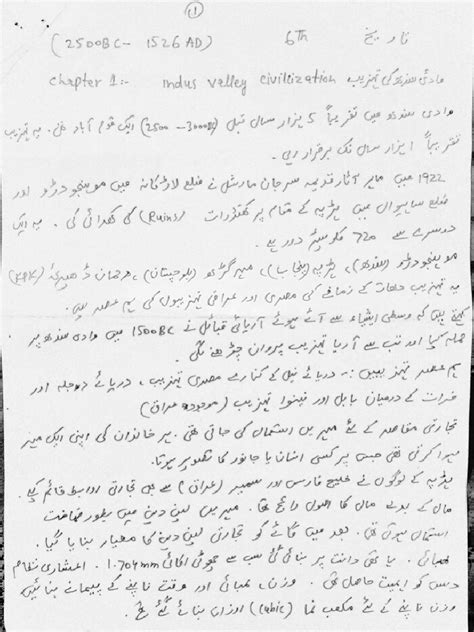 (1)
(2500BC - 1526AD) 6th تاریخ
chapter 1:- Indus valley civilization وادی سندھ کی تہذیب
وادی سندھ میں تقریباً 5 ہزار سال قبل (2500 - 3000BC) ایک قوم آباد تھی. یہ تہذیب
تقریباً 1 ہزار سال تک برقرار رہی.
1922 میں ماہر آثار قدیمہ سر جان مارشل نے ضلع لاڑکانہ میں موہنجودڑو اور
ضلع ساہیوال میں ہڑپہ کے مقام پر کھنڈرات (Ruins) کی کھدائی کی. یہ ایک
دوسرے سے 720 کلومیٹر دور ہے.
موہنجودڑو (سندھ)، ہڑپہ (پنجاب)، مہر گڑھ (بلوچستان)، رحمان ڈھیری (KPK)
یہ تہذیب دھات کے زمانے کی مصری اور عراقی تہذیبوں کی ہم عصر ہیں.
کہتے ہیں کہ وسطی ایشیاء سے آئے ہوئے آریائی قبائل نے 1500BC میں وادی سندھ پر
حملہ کیا اور تب سے آریا تہذیب پروان چڑھنے لگی
ہم عصر تہذیبیں :- دریائے نیل کے کنارے مصری تہذیب، دریائے دجلہ اور
فرات کے درمیان بابل اور نینوا تہذیب (موجودہ عراق)
تجارتی مقاصد کے لئے مہریں استعمال کی جاتی تھی. ہر خاندان کی اپنی ایک مہر
ہوا کرتی تھی جس پر کسی انسان یا جانور کا تصویر ہوتا.
ہڑپہ کے لوگوں نے خلیج فارس اور سمیر (عراق) سے بھی تجارتی روابط قائم کیے
مال کے بدلے مال کا اصول رائج تھا. مہریں لین دین میں بطور ضمانت
استعمال ہوتی تھی. بعد میں گائے کو تجارتی لین دین کا معیار بنایا گیا.
لمبائی. ہاتھی دانت پر بنائی گئی سب سے چھوٹی اکائی 1.704mm. اعشاری نظام
جس کو اہمیت حاصل تھی. وزن، لمبائی اور وقت ناپنے کے پیمانے بنائیں
وزن ناپنے کے لئے مکعب نما (cubic) اوزان بنائے گئے تھے